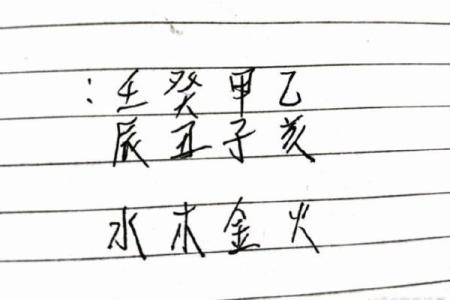 :壬癸甲乙
辰丑子亥
水木金火